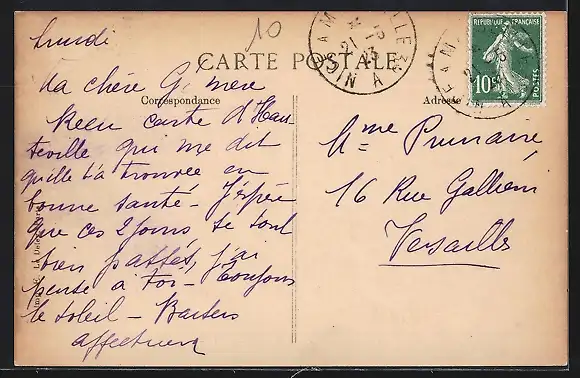 Lundi
10
CARTE POSTALE
Ma chère Gd mère
Correspondance
Adresse
Reçu carte d'Hau
teville qui me dit
qu'elle t'a trouvée en
bonne santé - J'espère
que ces 2 jours se sont
bien passés, j'ai
pensé à toi - Toujours
le soleil - Baisers
affectueux
Mme Prunaire
16 Rue Gallieni
Versailles
REPUBLIQUE FRANÇAISE
10
POSTES
NICE